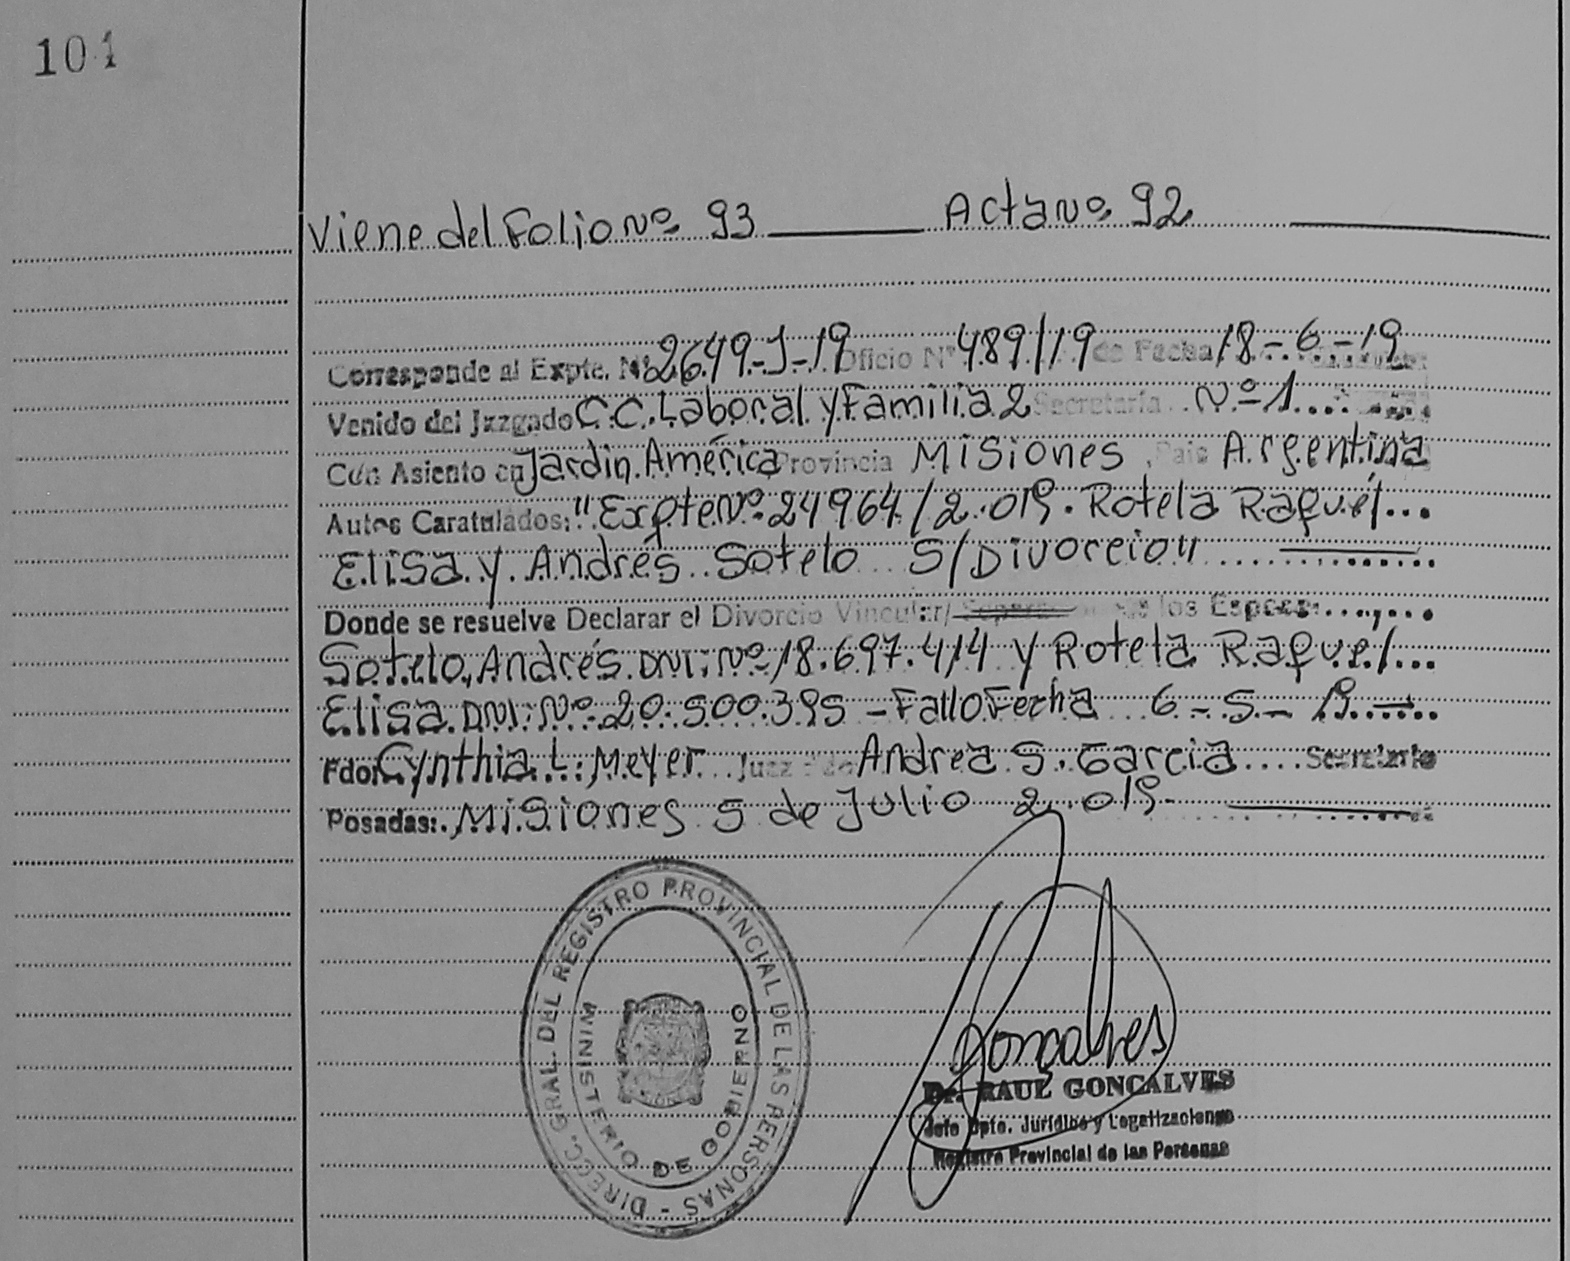 101
Viene del Folio Nº 93 Acta Nº 92
Corresponde al Expte. Nº 2649-J-19 Oficio Nº 489/19 de Fecha 18-6-19
Venido del Juzgado C.C. Laboral y Familia 2 Secretaría Nº 1
Con Asiento en Jardin América Provincia Misiones País Argentina
Autos Caratulados: "Expte Nº 24964/2.019. Rotela Raquel
Elisa y Andrés Sotelo S/Divorcio"
Donde se resuelve Declarar el Divorcio Vincular/ de los Esposos:
Sotelo, Andrés. DNI: Nº 18.697.414 y Rotela Raquel
Elisa. DNI: Nº 20.500.395 - Fallo Fecha 6-5-19
Fdo. Cynthia L. Meyer Juez Fdo Andrea S. Garcia Secretario
Posadas: Misiones 5 de Julio 2.019
DIRECC. GRAL. DEL REGISTRO PROVINCIAL DE LAS PERSONAS -
MINISTERIO DE GOBIERNO
Gonçalves
Dr. RAUL GONCALVES
Jefe Dpto. Jurídico y Legalizaciones
Registro Provincial de las Personas